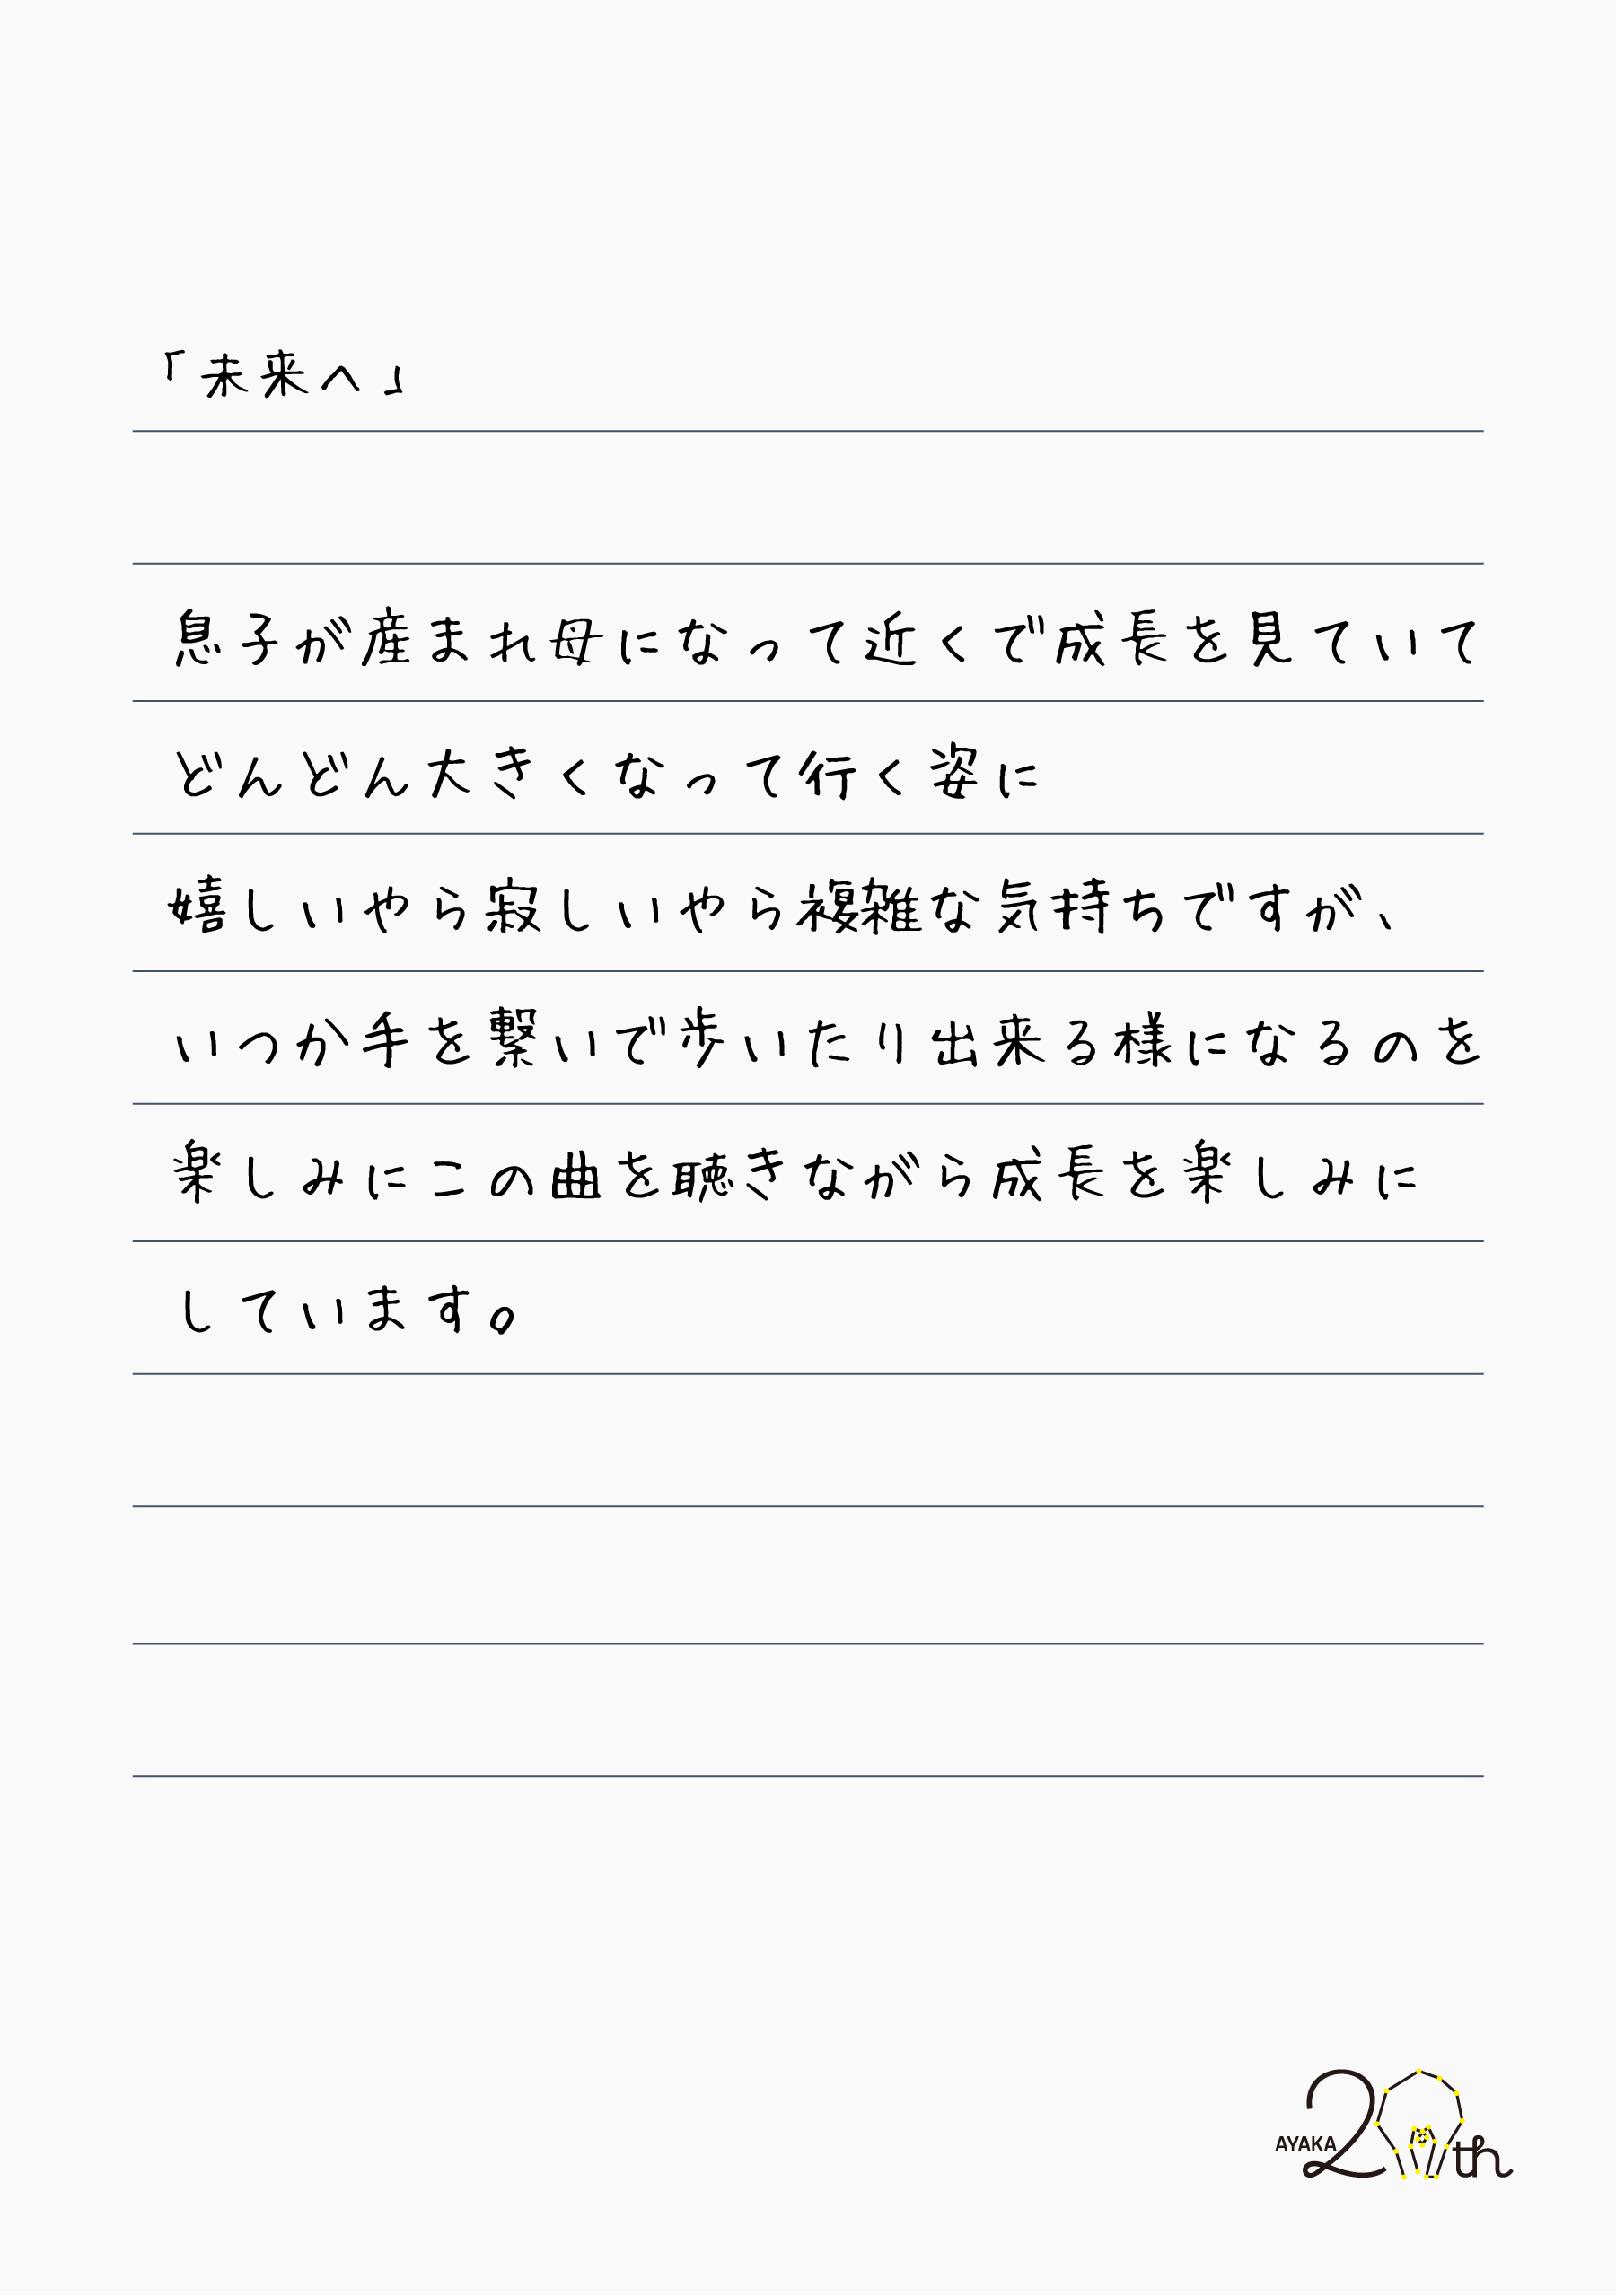 「未来へ」
息子が産まれ母になって近くで成長を見ていて
どんどん大きくなって行く姿に
嬉しいやら寂しいやら複雑な気持ちですが、
いつか手を繋いで歩いたり出来る様になるのを
楽しみにこの曲を聴きながら成長を楽しみに
しています。
AYAKA 20th